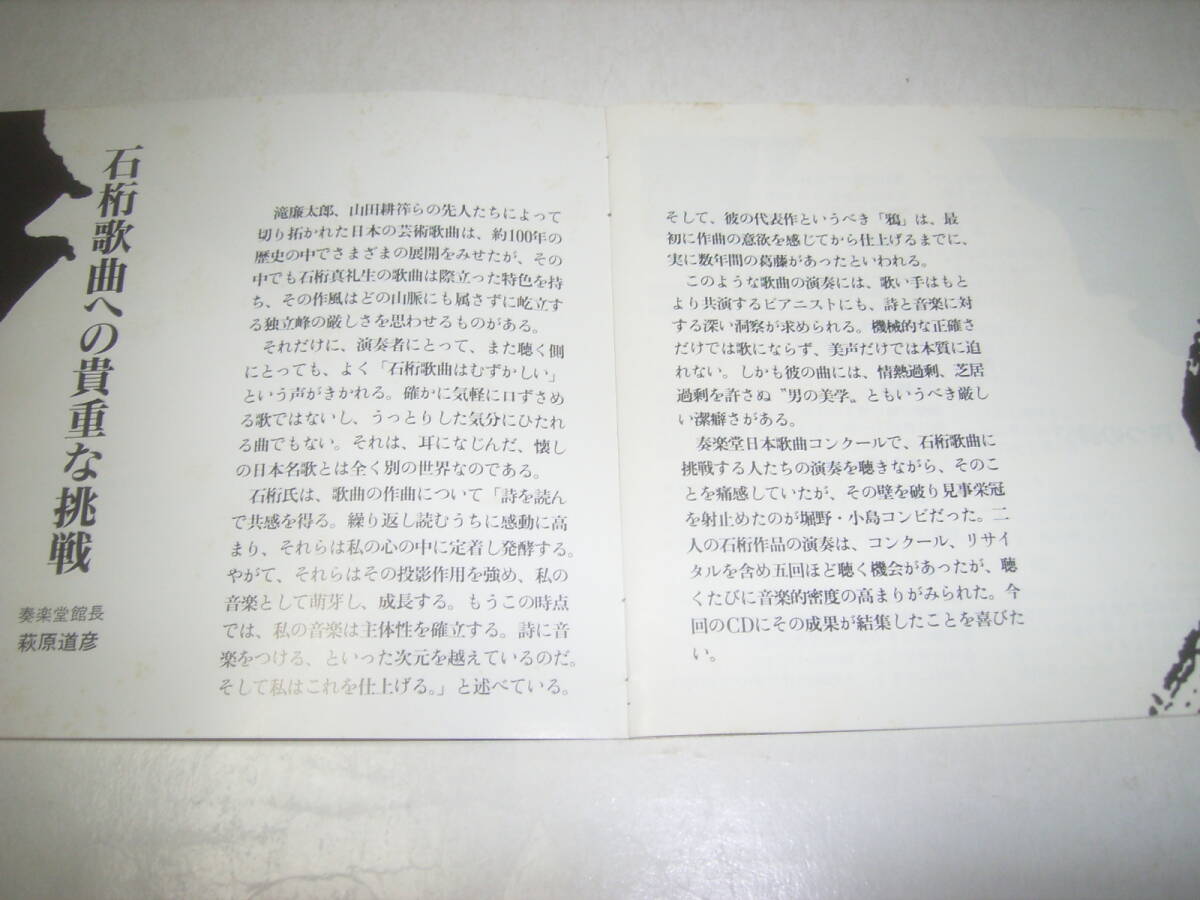 石桁歌曲への貴重な挑戦
奏楽堂館長
萩原道彦
滝廉太郎、山田耕筰らの先人たちによって
切り拓かれた日本の芸術歌曲は、約100年の
歴史の中でさまざまの展開をみせたが、その
中でも石桁真礼生の歌曲は際立った特色を持
ち、その作風はどの山脈にも属さずに屹立す
る独立峰の厳しさを思わせるものがある。
それだけに、演奏者にとって、また聴く側
にとっても、よく「石桁歌曲はむずかしい」
という声がきかれる。確かに気軽に口ずさめ
る歌ではないし、うっとりした気分にひたれ
る曲でもない。それは、耳になじんだ、懐し
の日本名歌とは全く別の世界なのである。
石桁氏は、歌曲の作曲について「詩を読ん
で共感を得る。繰り返し読むうちに感動に高
まり、それらは私の心の中に定着し発酵する。
やがて、それらはその投影作用を強め、私の
音楽として萌芽し、成長する。もうこの時点
では、私の音楽は主体性を確立する。詩に音
楽をつける、といった次元を越えているのだ。
そして私はこれを仕上げる。」と述べている。
そして、彼の代表作というべき「鴉」は、最
初に作曲の意欲を感じてから仕上げるまでに、
実に数年間の葛藤があったといわれる。
このような歌曲の演奏には、歌い手はもと
より共演するピアニストにも、詩と音楽に対
する深い洞察が求められる。機械的な正確さ
だけでは歌にならず、美声だけでは本質に迫
れない。しかも彼の曲には、情熱過剰、芝居
過剰を許さぬ〝男の美学〟ともいうべき厳し
い潔癖さがある。
奏楽堂日本歌曲コンクールで、石桁歌曲に
挑戦する人たちの演奏を聴きながら、そのこ
とを痛感していたが、その壁を破り見事栄冠
を射止めたのが堀野・小島コンビだった。二
人の石桁作品の演奏は、コンクール、リサイ
タルを含め五回ほど聴く機会があったが、聴
くたびに音楽的密度の高まりがみられた。今
回のCDにその成果が結集したことを喜びた
い。